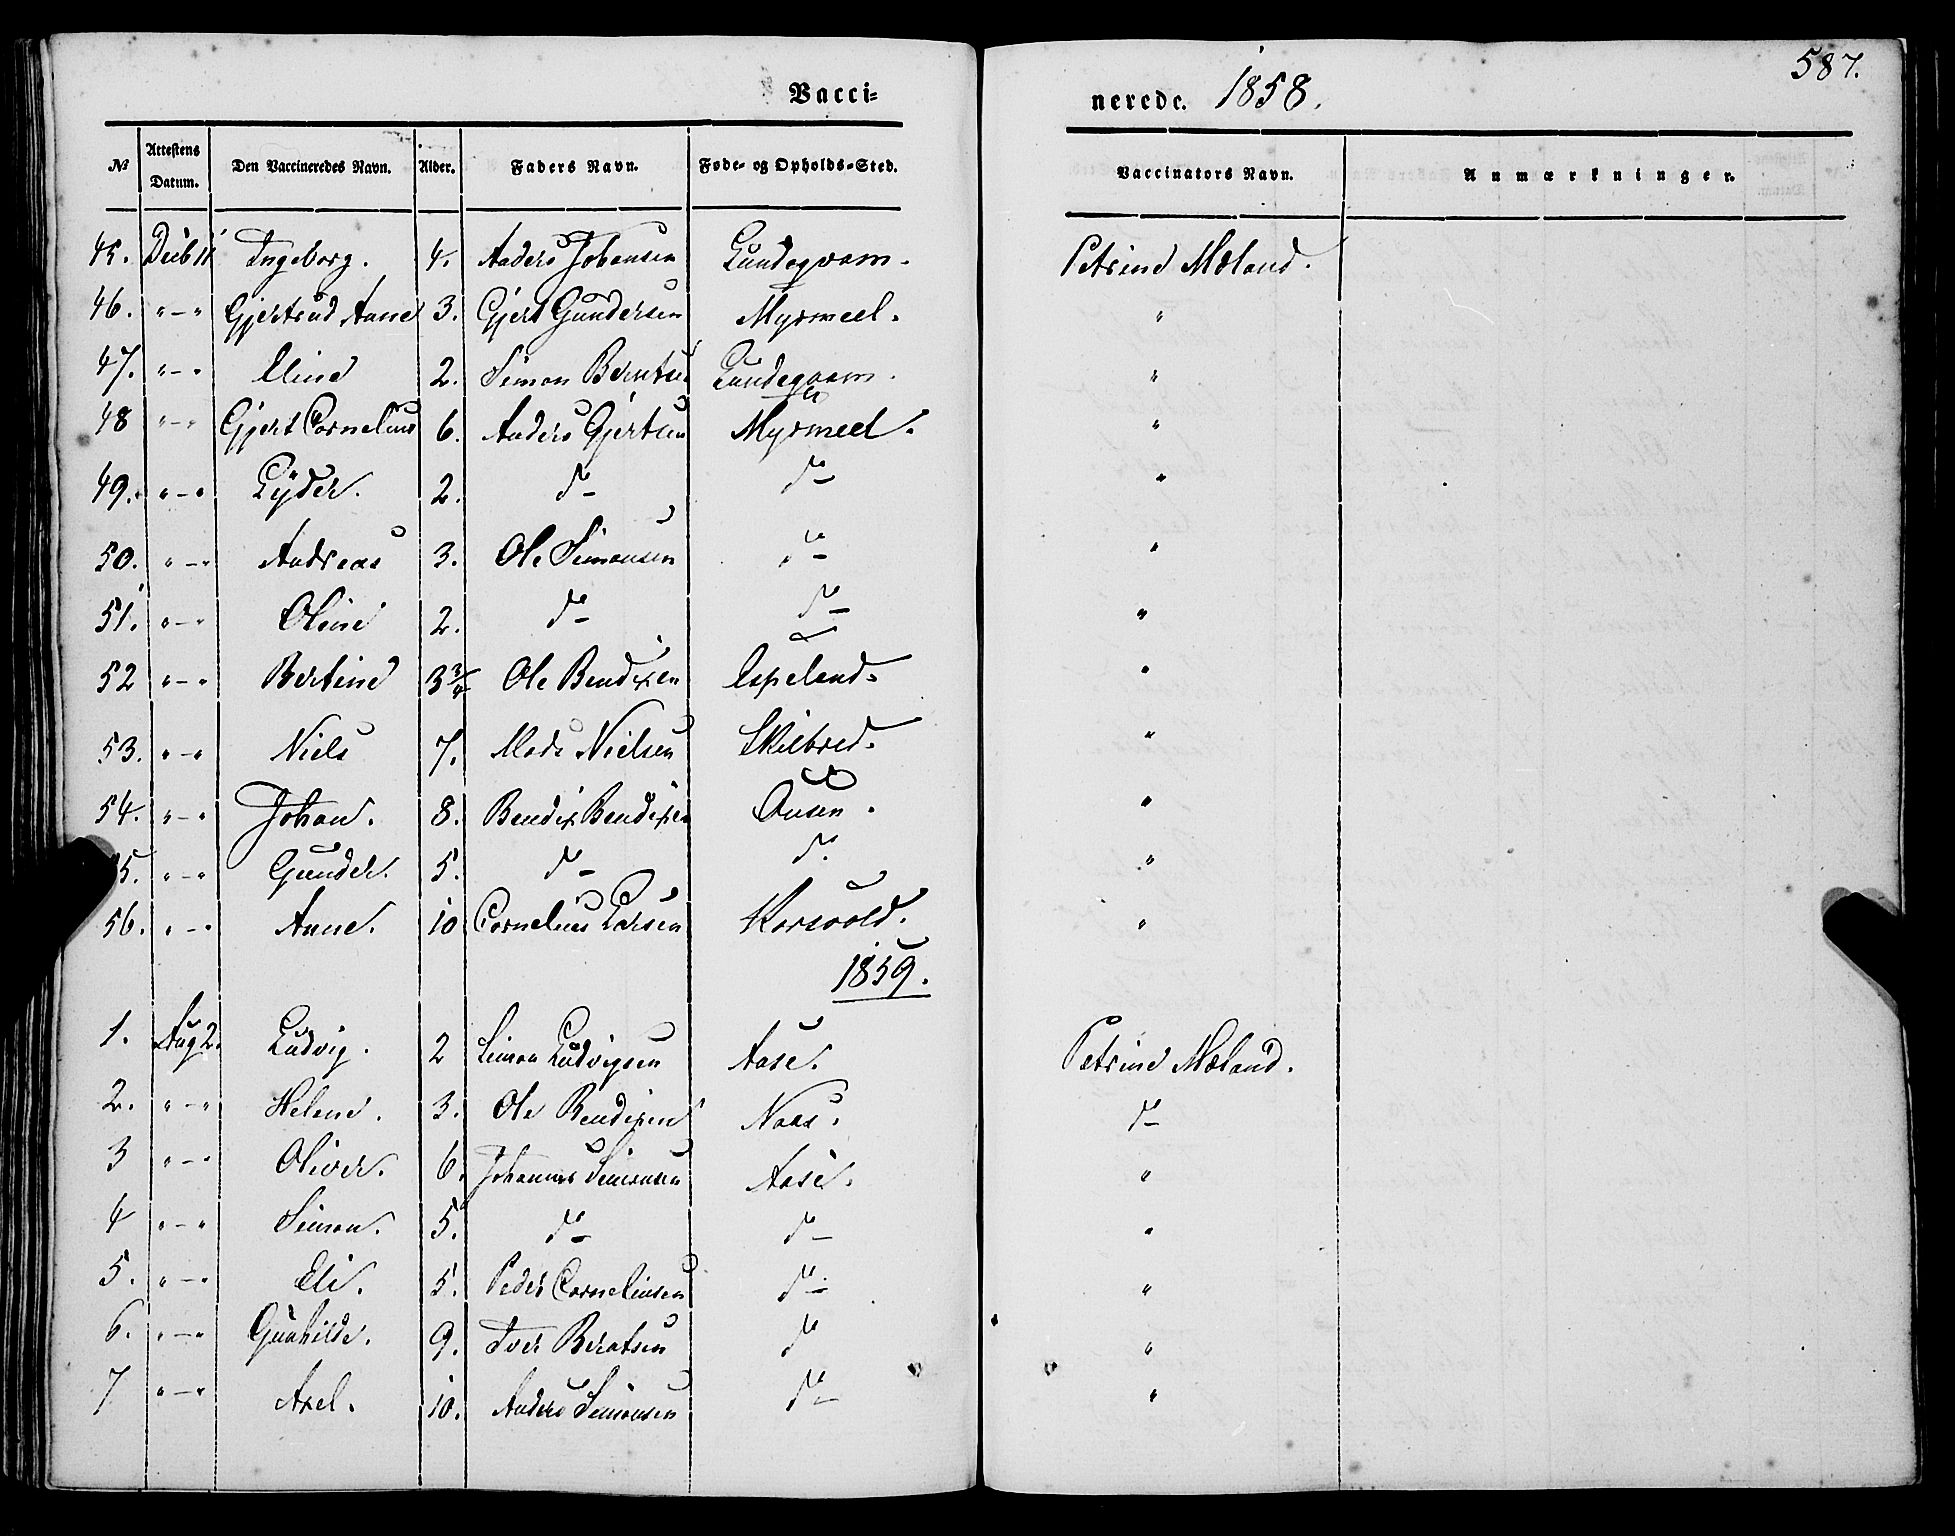 587.
Vacci-
nerede. 1858.
№ Attestens Datum. Den Vaccineredes Navn. Alder. Faders Navn. Føde- og Opholds-Sted. Vaccinators Navn. Anmærkninger.
45. Decb 11 Ingeborg. 4. Anders Johansen Lundeqvam. Petrine Mæland.
46. "–" Gjertrud Anne 3. Gjert Gundersen Myrmeel. "
47. "–" Eline 2. Simon Berntsen Lundeqvam. "
48 "–" Gjert Cornelius 6. Anders Gjertsen Myrmeel. "
49. "–" Lÿder. 2. do– do– "
50. "–" Andreas 3. Ole Simonsen do– "
51. "–" Oline 2. do– do– "
52 "–" Bertine 3 3/4 Ole Bendixen Espeland. "
53. "–" Niels 7. Mads Nielsen Skilbred. "
54. "–" Johan. 8. Bendix Bendixen Ousen. "
55. "–" Gunder. 5. do– do. "
56. "–" Anne. 10 Cornelius Larsen Korsvold. "
1859.
1. Aug 2. Ludvig. 2 Simon Ludvigsen Aase. Petrine Mæland.
2. "–" Helene. 3. Ole Bendixen Naas. do–
3 "–" Oliver. 6. Johannes Simonsen Aase. "
4 "–" Simon. 5. do– do– "
5. "–" Eli. 5. Peder Corneliusen do– "
6. "–" Gunhilde. 9. Iver Berntsen do "
7 "–" Axel. 10. Anders Simonsen do– "